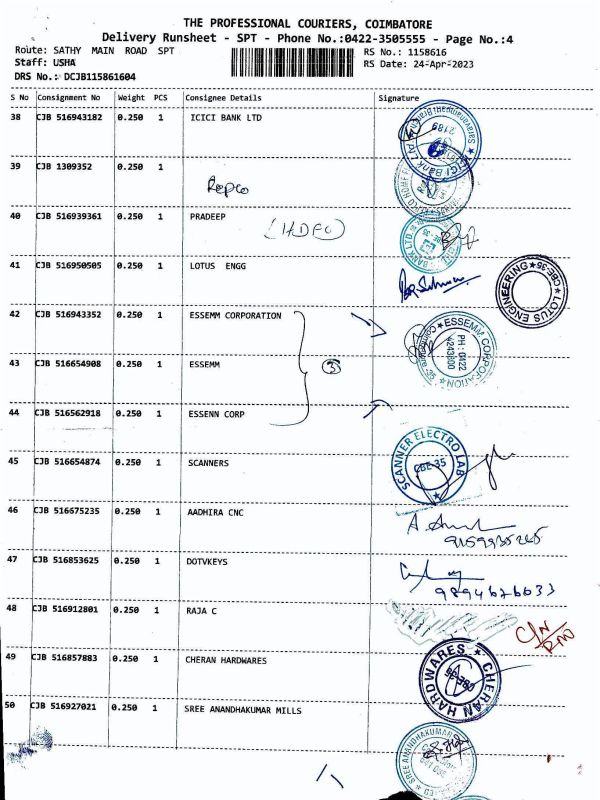 THE PROFESSIONAL COURIERS, COIMBATORE
Delivery Runsheet - SPT - Phone No.:0422-3505555 - Page No.:4
Route: SATHY MAIN ROAD SPT
RS No.: 1158616
Staff: USHA
RS Date: 24-Apr-2023
DRS No.: DCJB115861604
S No Consignment No Weight PCS Consignee Details Signature
38 CJB 516943182 0.250 1 ICICI BANK LTD
39 CJB 1309352 0.250 1
Repco
40 CJB 516939361 0.250 1 PRADEEP
(HDFC)
41 CJB 516950505 0.250 1 LOTUS ENGG
LOTUS ENGINEERING ★ CBE-35 ★
42 CJB 516943352 0.250 1 ESSEMM CORPORATION
ESSEMM CORPORATION
PH : 0422
4243800
43 CJB 516654908 0.250 1 ESSEMM
3
44 CJB 516562918 0.250 1 ESSENN CORP
45 CJB 516654874 0.250 1 SCANNERS
SCANNER ELECTRO LAB
CBE-35
46 CJB 516675235 0.250 1 AADHIRA CNC
47 CJB 516853625 0.250 1 DOTVKEYS
9894626633
48 CJB 516912801 0.250 1 RAJA C
49 CJB 516857883 0.250 1 CHERAN HARDWARES
CHERAN HARDWARES
50 CJB 516927021 0.250 1 SREE ANANDHAKUMAR MILLS
SREE ANANDHAKUMAR